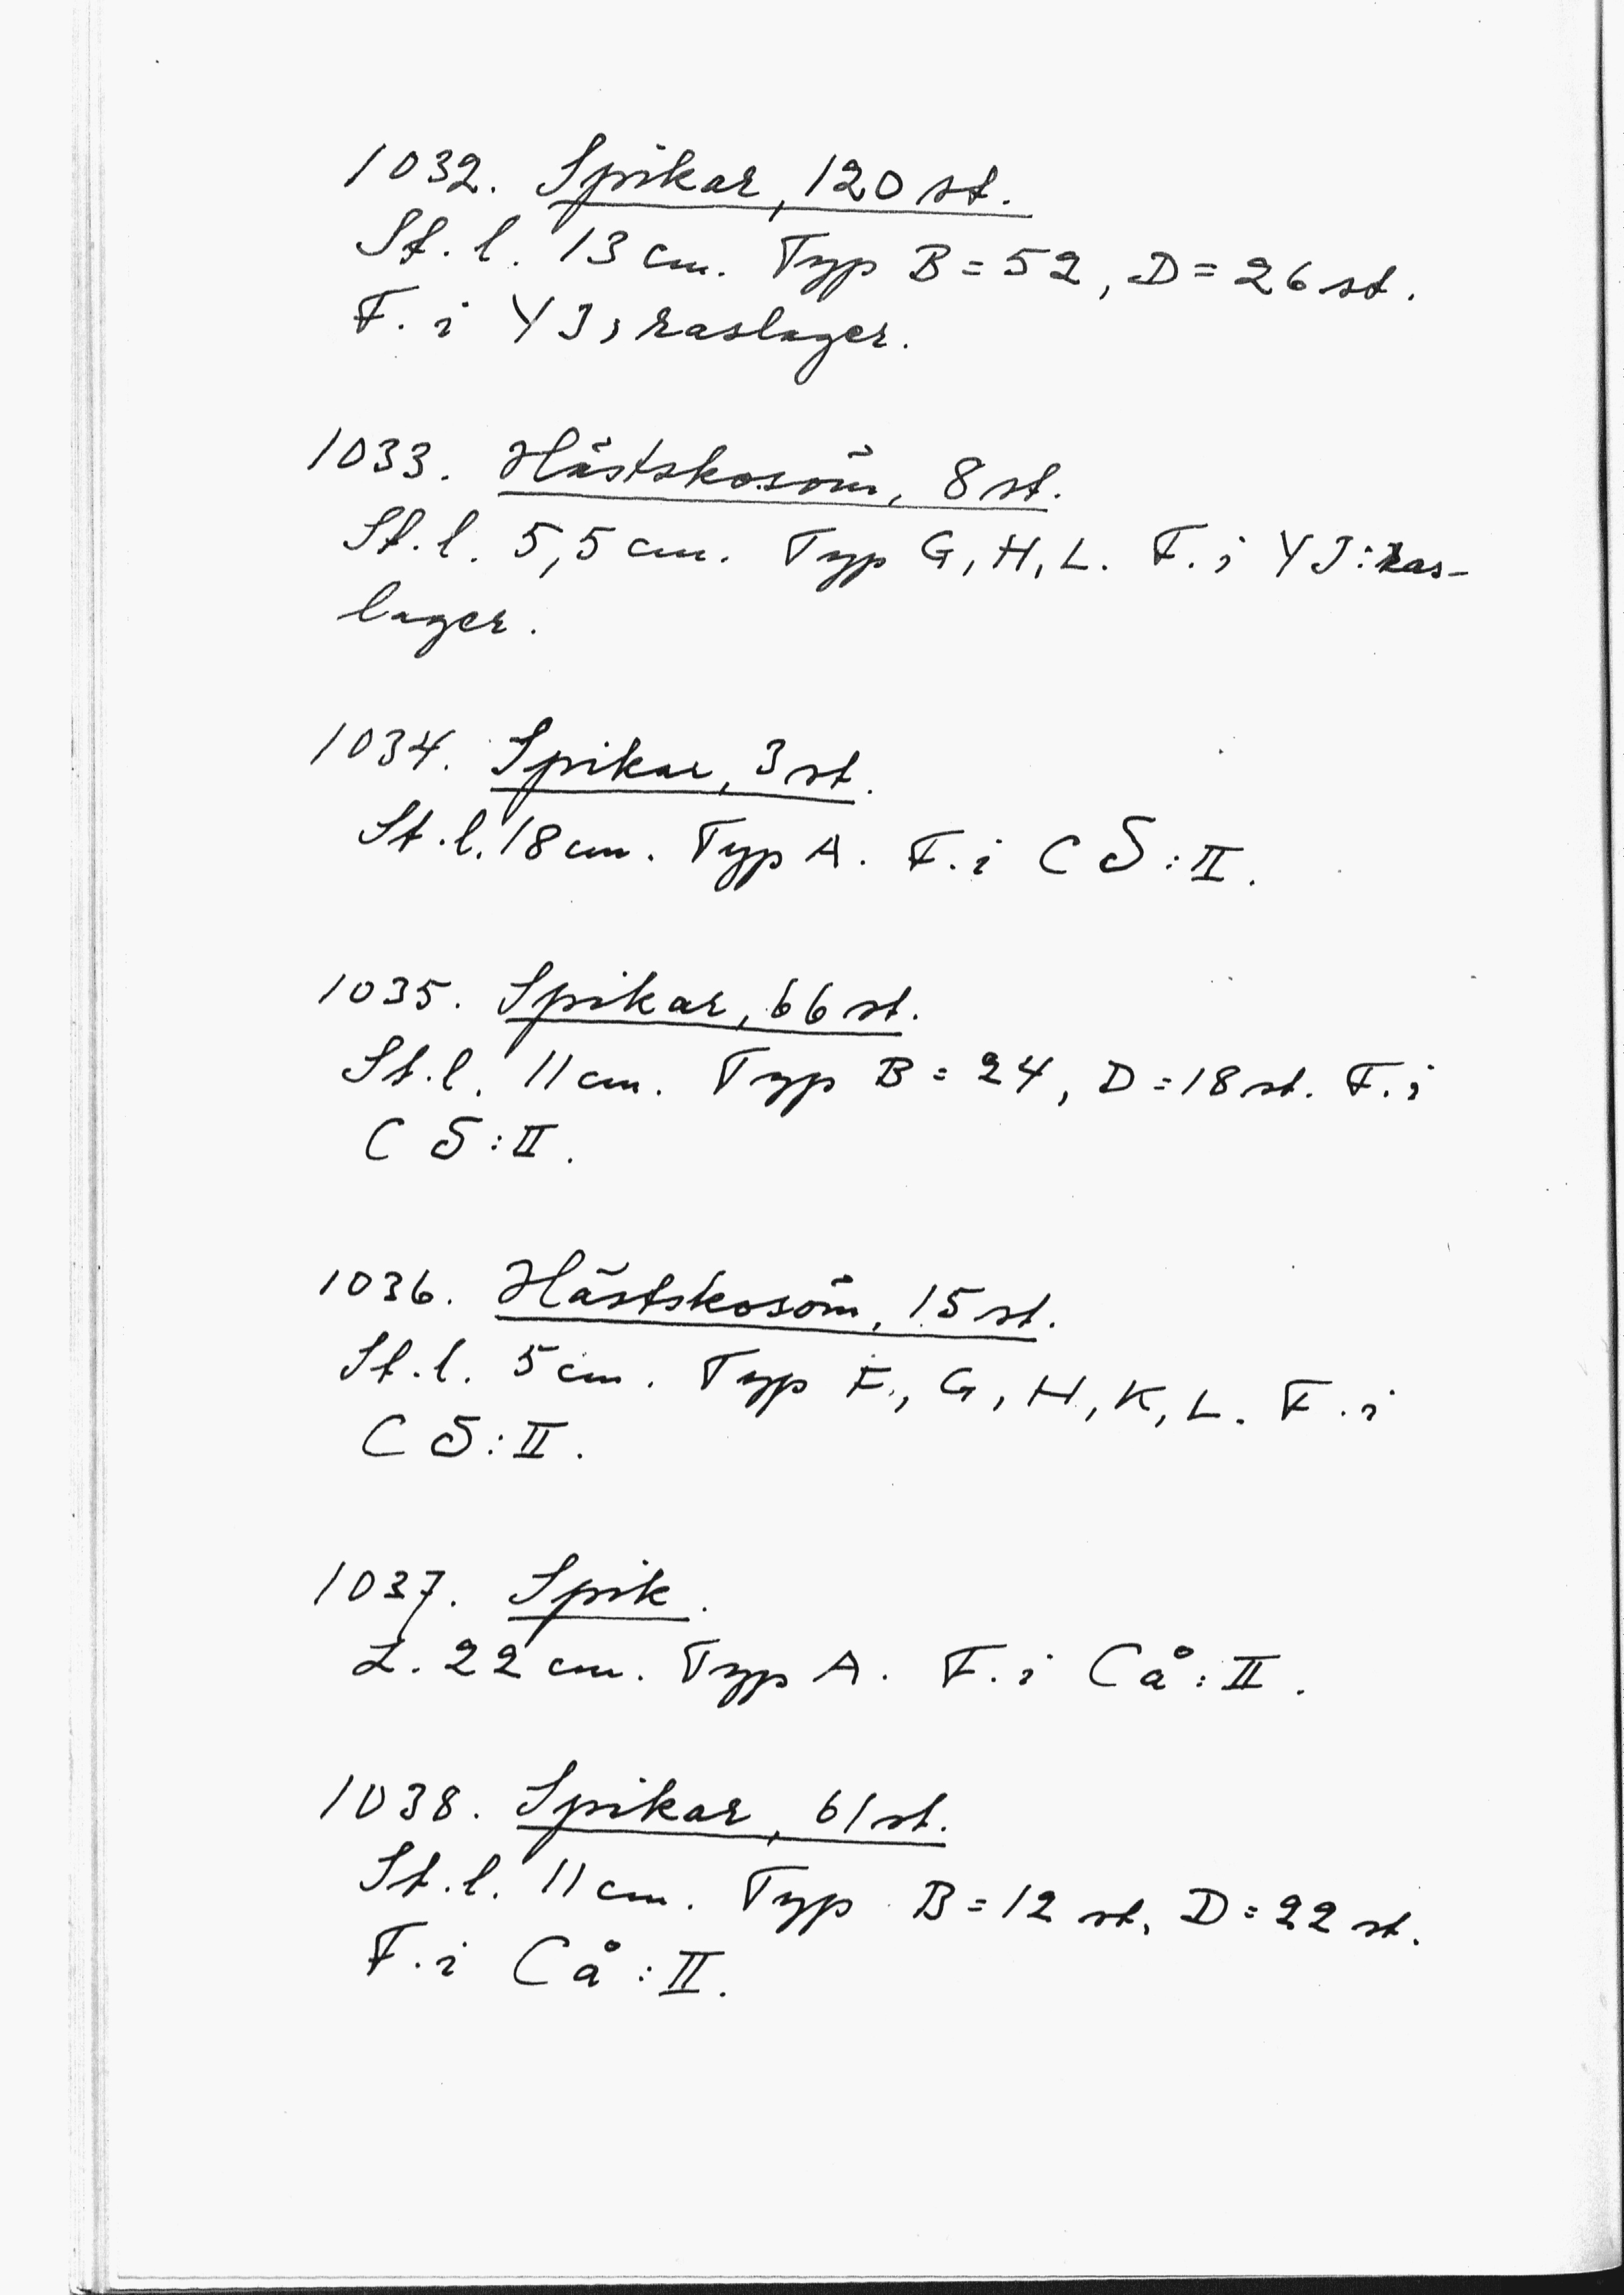 1032. Spikar, 120 st.
St. l. 13 cm. Typ B = 52, D = 26 st.
F. i Y J, raslager.
1033. Hästskosöm, 8 st.
St. l. 5,5 cm. Typ G, H, L. F. i Y J: ras-
lager.
1034. Spikar, 3 st.
St. l. 18 cm. Typ A. F. i C S : II.
1035. Spikar, 66 st.
St. l. 11 cm. Typ B = 24, D = 18 st. F. i
C S : II.
1036. Hästskosöm, 15 st.
St. l. 5 cm. Typ F, G, H, K, L. F. i
C S : II.
1037. Spik.
L. 22 cm. Typ A. F. i C å : II.
1038. Spikar, 61 st.
St. l. 11 cm. Typ B = 12 st, D = 22 st.
F. i C å : II.